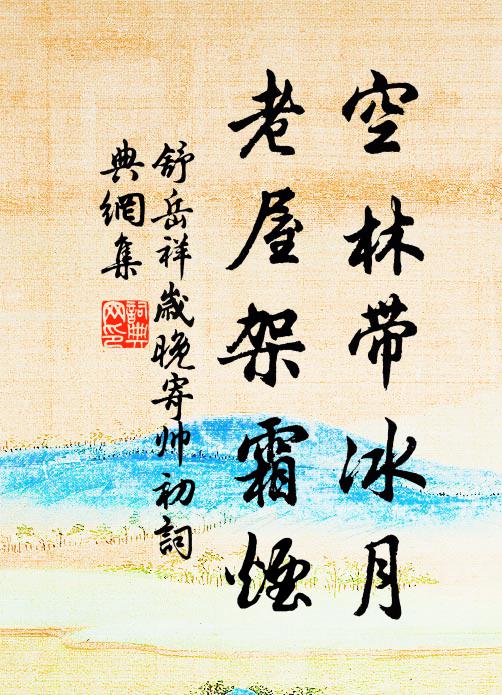 空林带冰月
老屋架霜烟
舒岳祥岁晚寄帅初詞
典網集
詞典网印